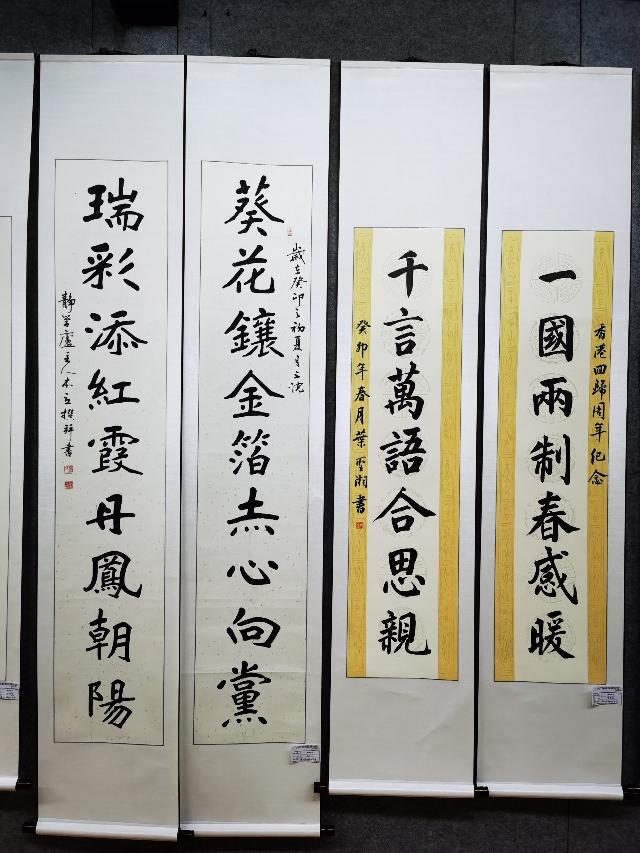 香港回歸周年紀念
一國兩制春感暖
千言萬語合思親
癸卯年春月葉湘書
歲在癸卯之初夏月之浣
葵花鑲金箔赤心向黨
瑞彩添紅霞丹鳳朝陽
靜學廬主人木立撰拜書